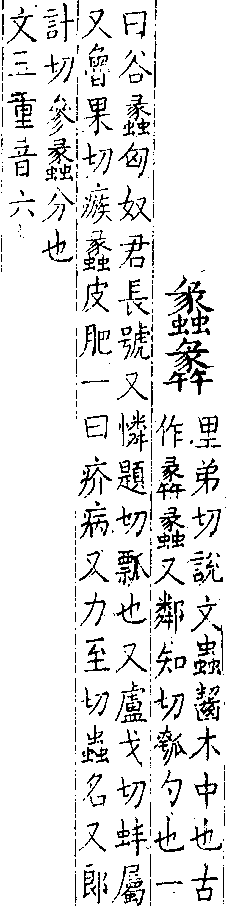 蠡
里弟切說文蟲齧木中也古
作蠡又鄰知切瓠勺也一
曰谷蠡匈奴君長號又憐題切瓢也又盧戈切蚌屬
又魯果切瘯蠡皮肥一曰疥病又力至切蟲名又郎
計切參蠡分也
文三重音六